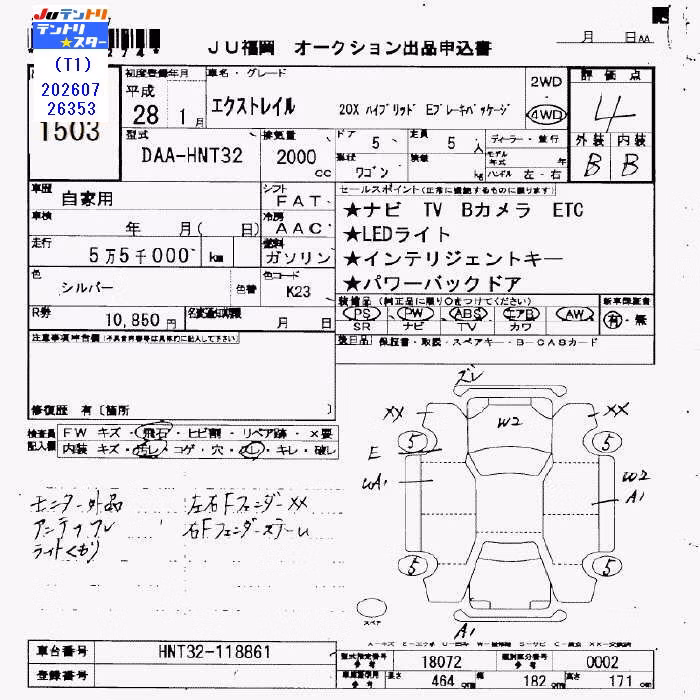 JUテントリ
テントリ
★スター
(T1)
202607
26353
1503
JU福岡 オークション出品申込書
月 日 AA
初度登録年月
平成
28 1月
車名・グレード
エクストレイル 20X ハイブリッド Eブレーキパッケージ
2WD
4WD
評価点
4
外装 内装
B B
型式
DAA-HNT32
排気量
2000
cc
ドア 5
定員 5人
ワゴン
kg
ディーラー・並行
モデル年式 年
ハンドル 左・右
車歴
自家用
シフト
FAT
車検
年 月( 日)
冷房
AAC
走行
5万5千000 km
燃料
ガソリン
色
シルバー
色替
色コード
K23
R券
10,850円
名義変更期限
月 日
セールスポイント(正常に機能するものに限ります)
★ナビ TV Bカメラ ETC
★LEDライト
★インテリジェントキー
★パワーバックドア
装備品(純正品に限り○をつけてください)
PS PW ABS エアB AW
SR ナビ TV カワ
新車保証書
有・無
後日品 保証書・取説・スペアキー・B-CASカード
注意事項申告欄(不具合内容等は具体的に記入して下さい)
修復歴 有〔箇所 〕
検査員
記入欄
FW キズ・飛石・ヒビ割・リペア跡・×要
内装 キズ・汚レ・コゲ・穴・スレ・キレ・破レ
モニター外品
アンテナズレ
ライトくもり
左右Fフェンダー××
右Fフェンダーステー凹
ズレ
×× ××
W2
5 5
E
WA1
W2
A1
5 5
A1
スペア
車台番号 HNT32-118861
登録番号
型式指定番号
参考
18072
類別区分番号
参考
0002
長さ 464 cm
幅 182 cm
高さ 171 cm